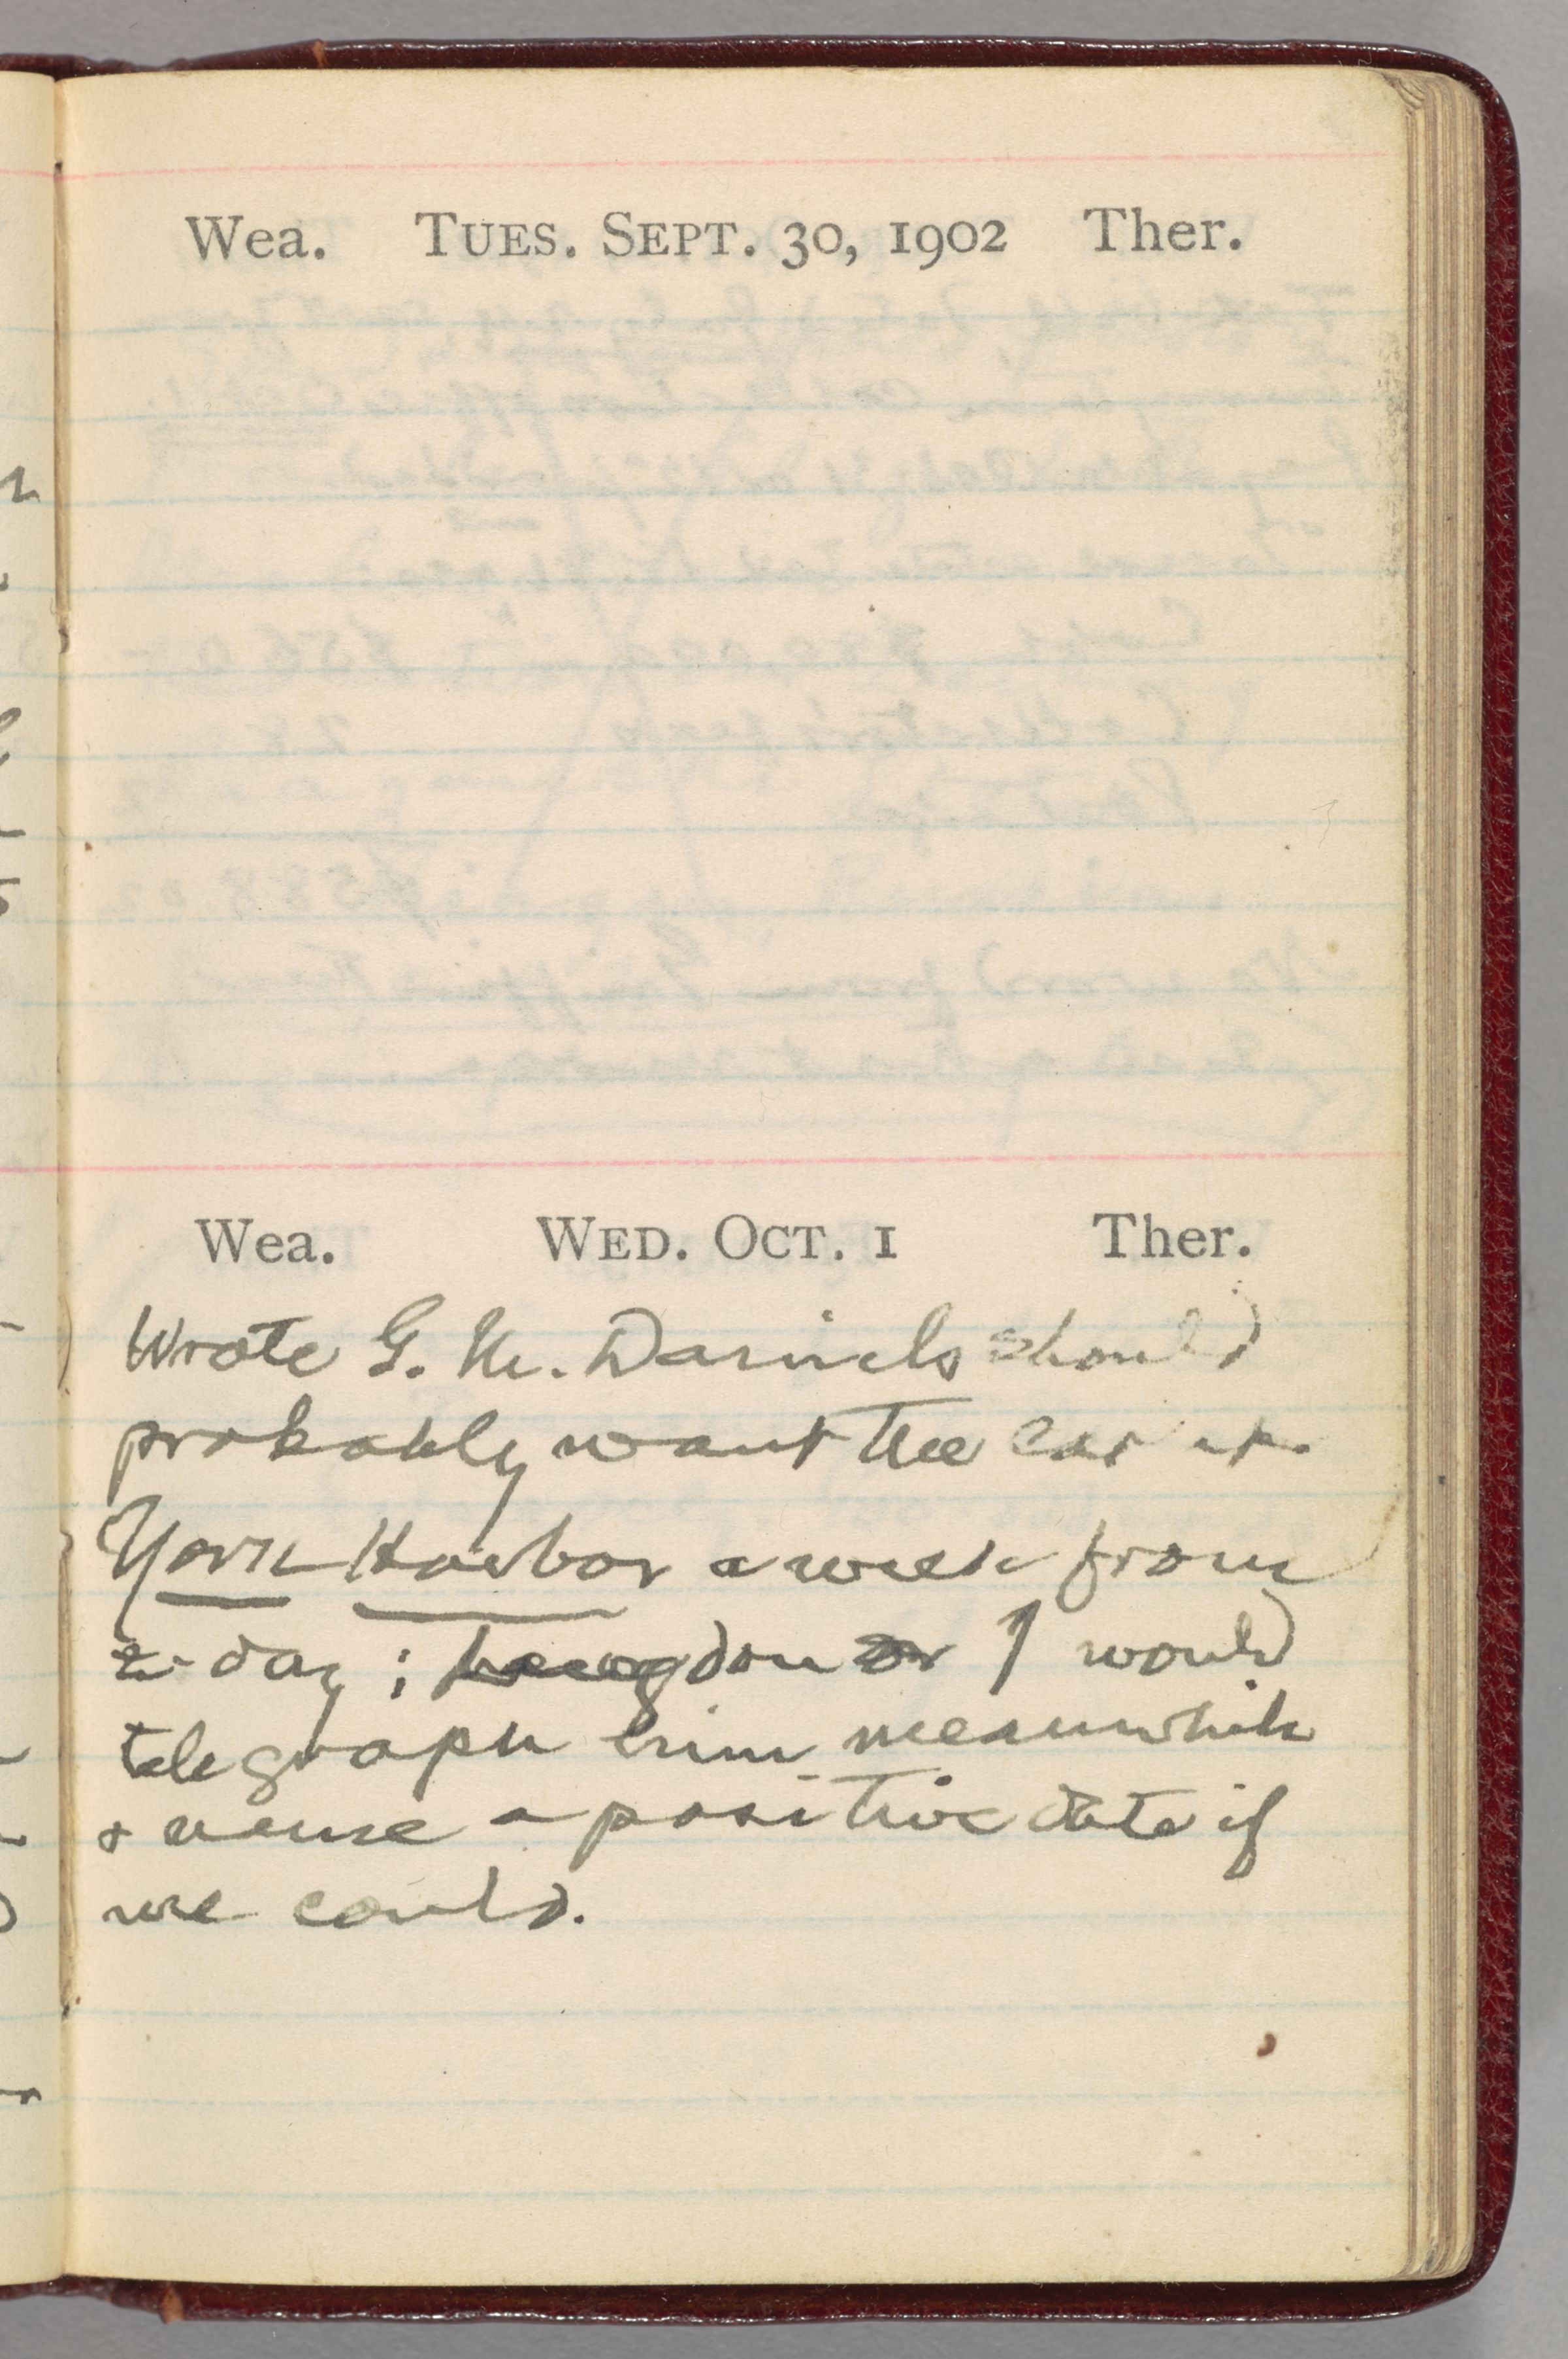 Wea. TUES. SEPT. 30, 1902 Ther.
Wea. WED. OCT. 1 Ther.
Wrote G. H. Daniels should
probably want the car at
York Harbor a week from
to-day; Langdon or I would
telegraph him meanwhile
& name a positive date if
we could.